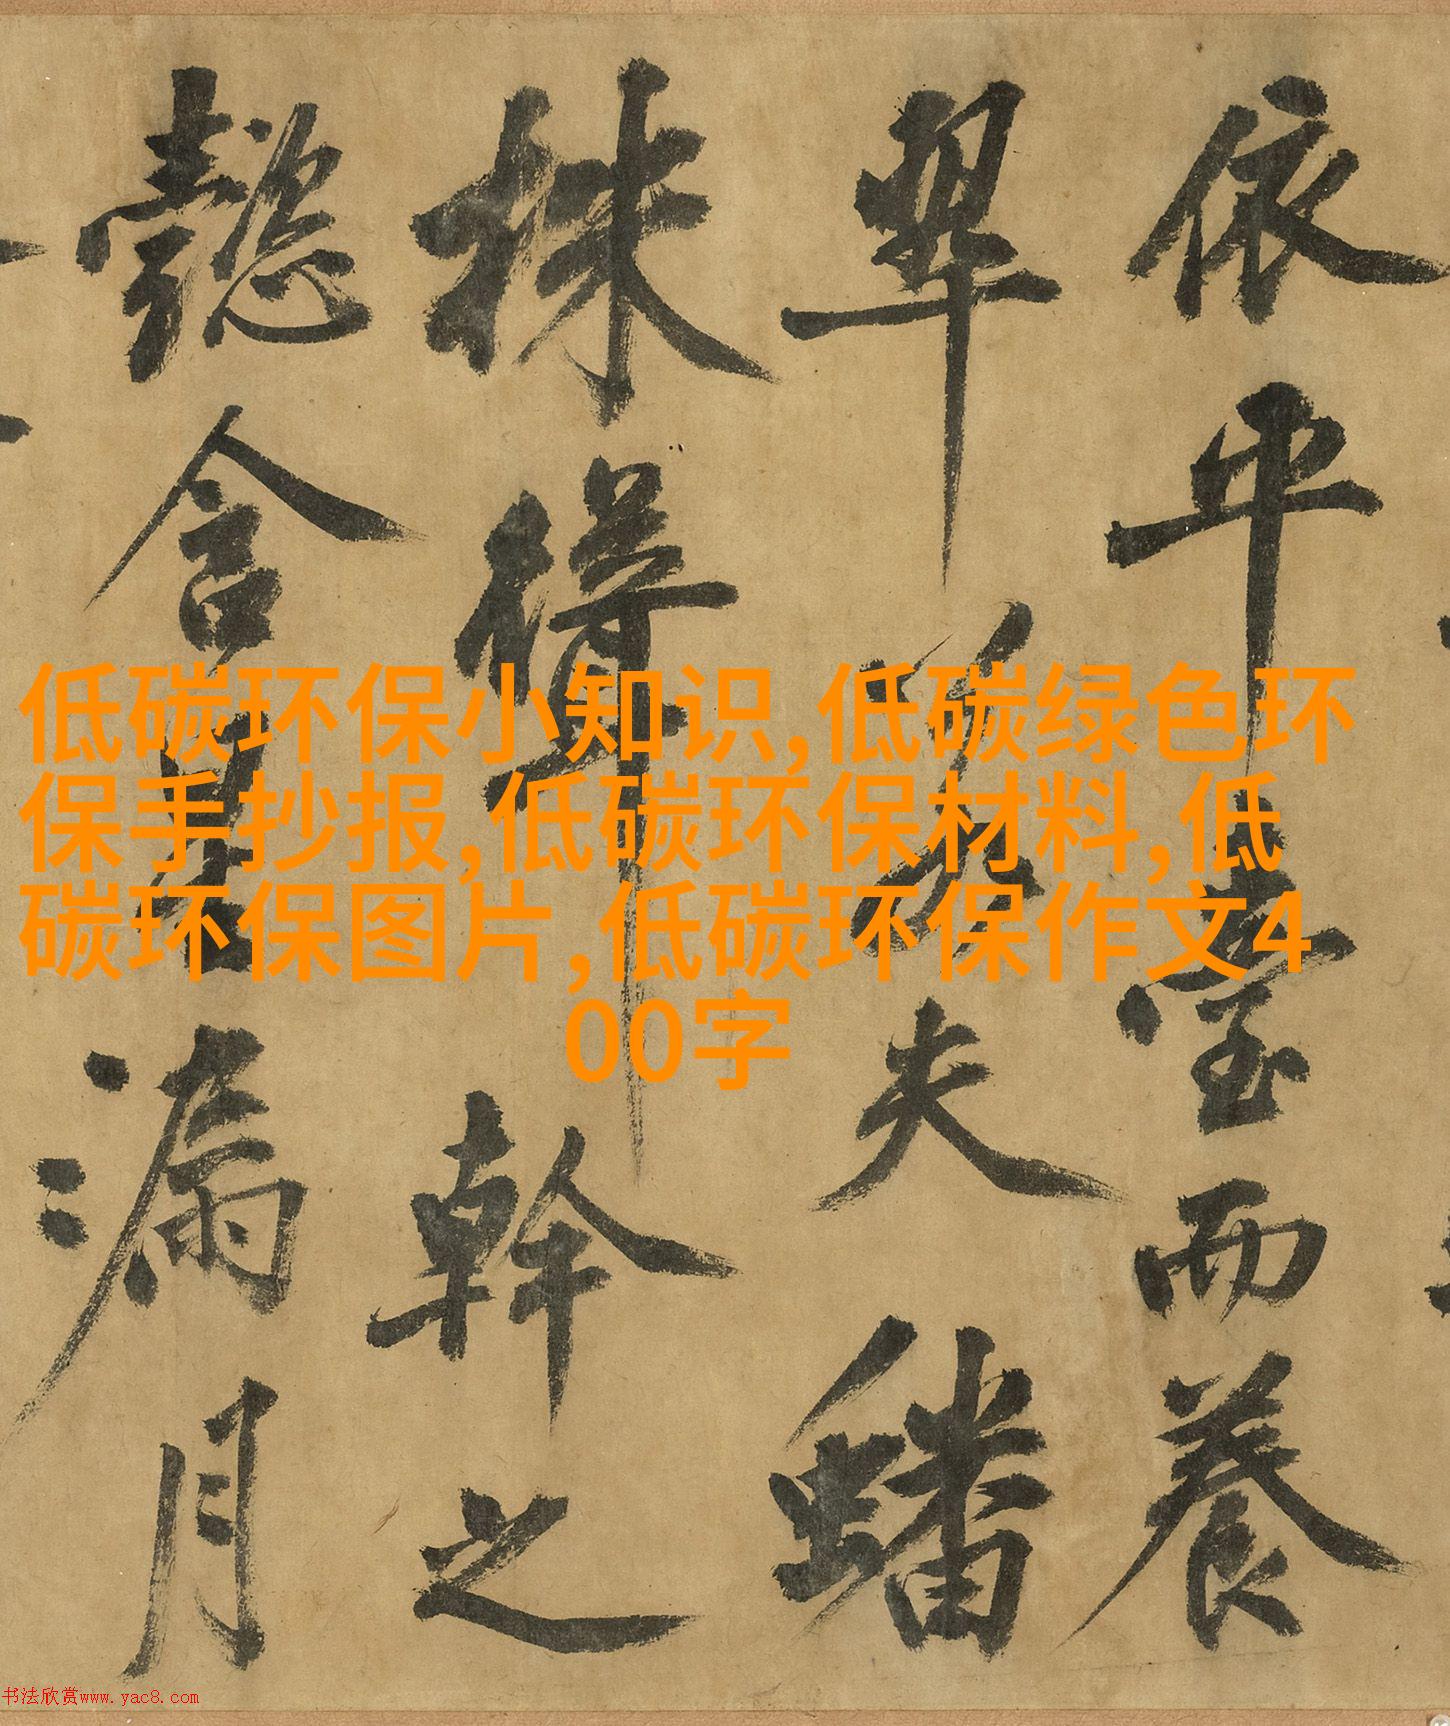 依乎臺而養
翠若夫蟠
株聳幹之
懿含星漏月
低碳环保小知识,低碳绿色环
保手抄报,低碳环保材料,低
碳环保图片,低碳环保作文4
00字
书法欣赏www.yac8.com